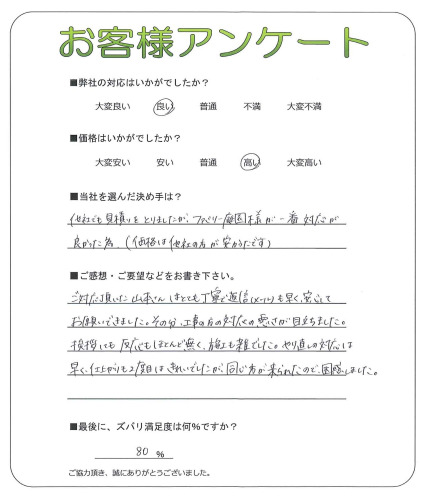 お客様アンケート
■弊社の対応はいかがでしたか?
大変良い 良い 普通 不満 大変不満
■価格はいかがでしたか?
大変安い 安い 普通 高い 大変高い
■当社を選んだ決め手は?
他社でも見積りをとりましたが、ファミリー庭園様が一番対応が
良かった為。(価格は他社の方が安かったです)
■ご感想・ご要望などをお書き下さい。
ご対応頂いた山本さんはとても丁寧で返信(メール)も早く、安心して
お願いできました。その分、工事の方の対応の悪さが目立ちました。
挨拶にも反応もほとんど無く、施工も雑でした。やり直しの対応は
早く、仕上がりも2度目はきれいでしたが、同じ方が来られたので、困惑しました。
■最後に、ズバリ満足度は何%ですか?
80 %
ご協力頂き、誠にありがとうございました。